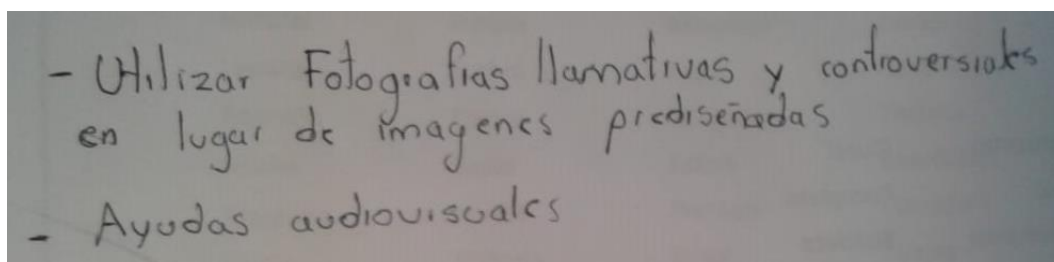 - Utilizar Fotografias llamativas y controversiales
en lugar de imagenes prediseñadas
- Ayudas audiovisuales